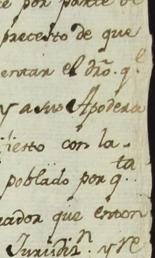 te por parte de
precesto de que
entran el dro. q.e
y a sus Apodera
ilesto con la
poblado por q.ta
nador que enton
Jurisdn. y re